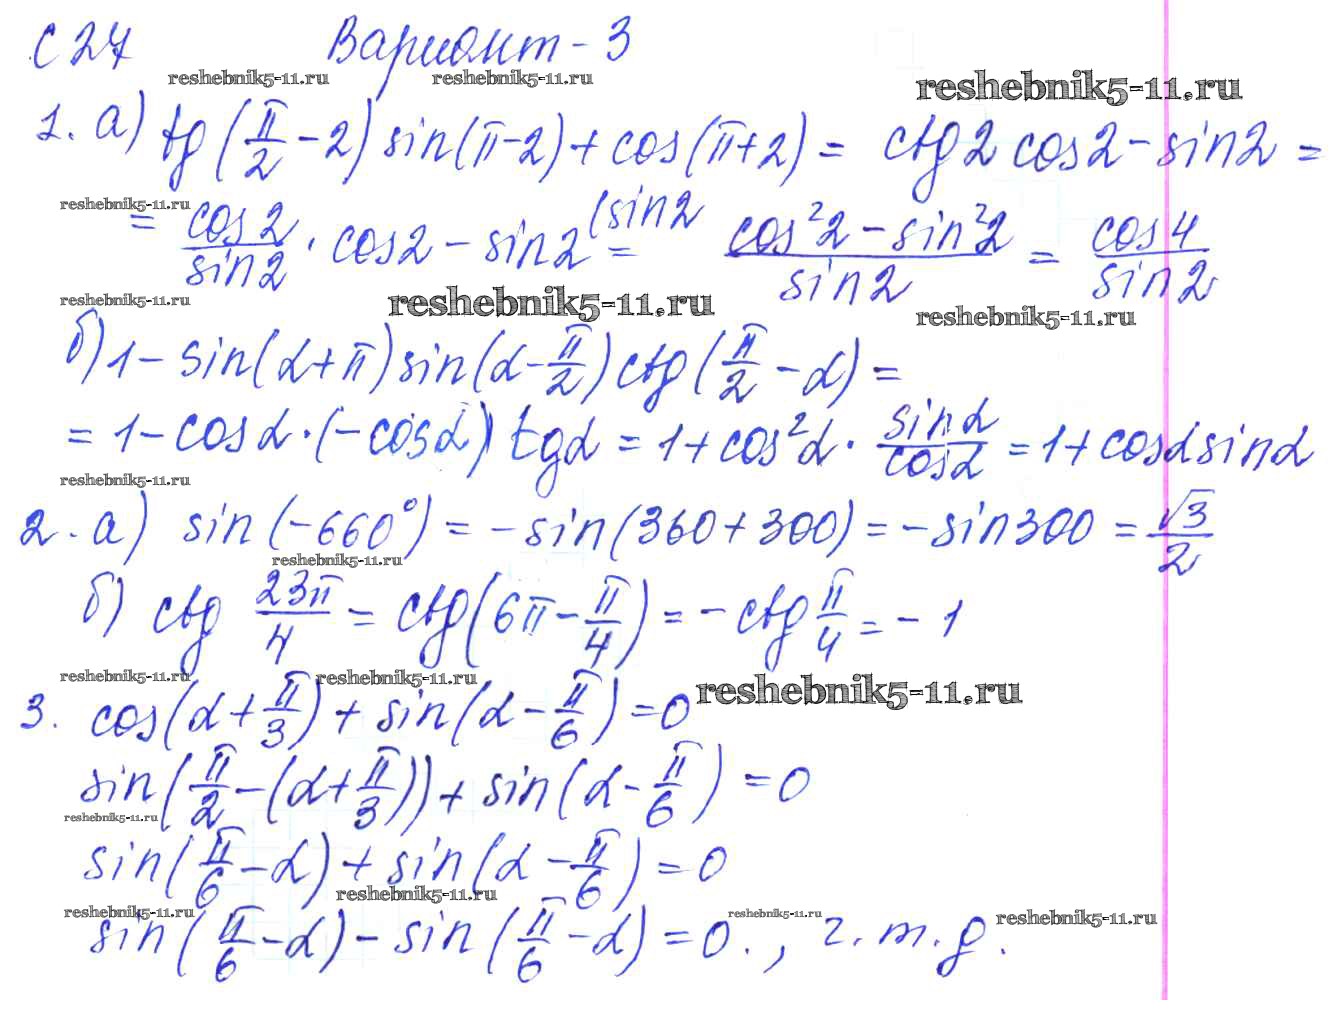 С 27 Вариант - 3
reshebnik5-11.ru reshebnik5-11.ru reshebnik5-11.ru
1. а) tg(π/2 - 2) sin(π-2) + cos(π+2) = ctg2 cos2 - sin2 =
reshebnik5-11.ru
= cos2/sin2 · cos2 - sin2 (sin2 = cos²2 - sin²2/sin2 = cos4/sin2
reshebnik5-11.ru reshebnik5-11.ru reshebnik5-11.ru
б) 1 - sin(α+π) sin(α-π/2) ctg(π/2 - α) =
= 1 - cosα · (-cosα) tgα = 1 + cos²α · sinα/cosα = 1 + cosα sinα
reshebnik5-11.ru
2. а) sin(-660°) = - sin(360+300) = - sin300 = √3/2
reshebnik5-11.ru
б) ctg 23π/4 = ctg(6π - π/4) = - ctg π/4 = - 1
reshebnik5-11.ru reshebnik5-11.ru reshebnik5-11.ru
3. cos(α + π/3) + sin(α - π/6) = 0
sin(π/2 - (α + π/3)) + sin(α - π/6) = 0
reshebnik5-11.ru
sin(π/6 - α) + sin(α - π/6) = 0
reshebnik5-11.ru
reshebnik5-11.ru reshebnik5-11.ru reshebnik5-11.ru
sin(π/6 - α) - sin(π/6 - α) = 0. , ч. т. д.